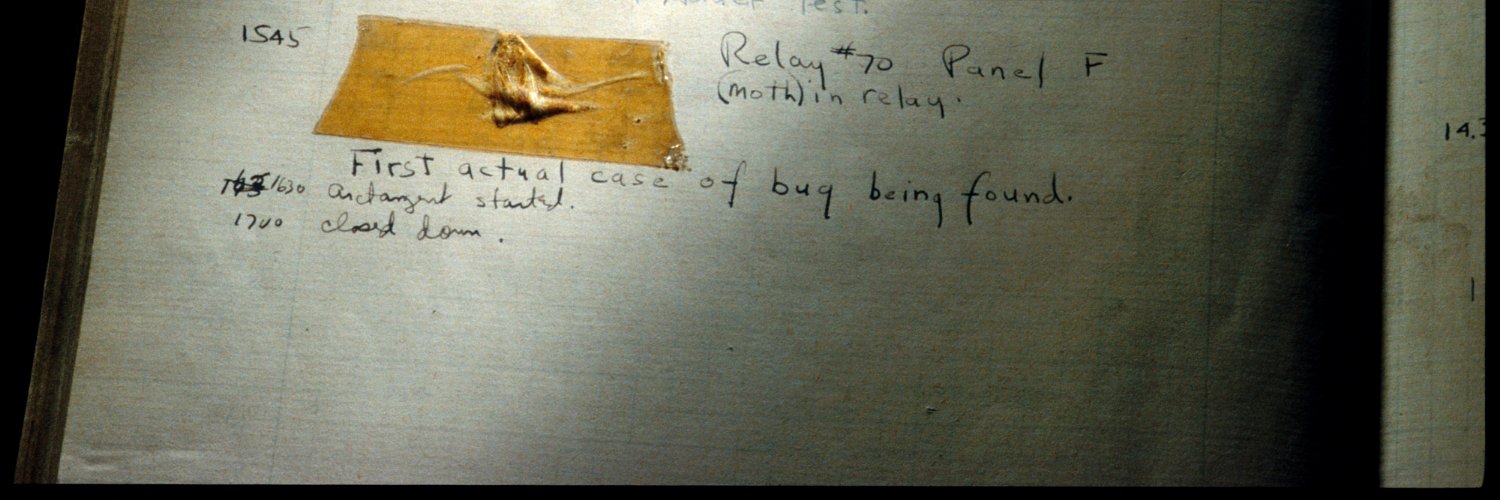 Adder Test.
1545 Relay #70 Panel F
(moth) in relay.
First actual case of bug being found.
1630 arctangent started.
1700 closed down.
14.3